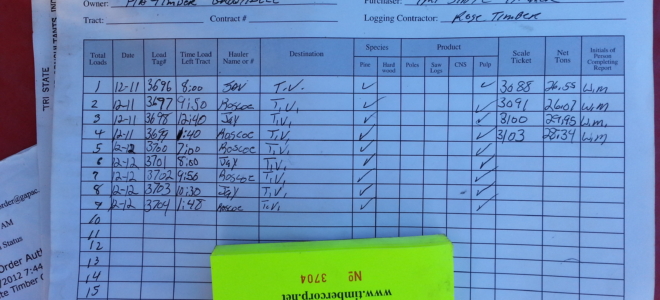 Owner: Timber
Purchaser: TRI STATE
Tract: Contract # Logging Contractor: Rose Timber
Total Loads Date Load Tag# Time Load Left Tract Hauler Name or # Destination Species Product Scale Ticket Net Tons Initials of Person Completing Report
Pine Hard wood Poles Saw Logs CNS Pulp
1 12-11 3696 8:00 Jay T.V. ✓ ✓ 3088 26.55 W.M
2 12-11 3697 9:50 Roscoe T.V. ✓ ✓ 3091 26.07 W.M
3 12-11 3698 12:40 Jay T.V. ✓ ✓ 3100 29.95 W.M
4 12-11 3699 1:40 Roscoe T.V. ✓ ✓ 3103 28.34 W.M
5 12-12 3700 7:00 Roscoe T.V. ✓ ✓
6 12-12 3701 8:00 Jay T.V. ✓ ✓
7 12-12 3702 9:50 Roscoe T.V. ✓ ✓
8 12-12 3703 10:30 Jay T.V. ✓ ✓
9 12-12 3704 1:48 Roscoe T.V. ✓ ✓
10
11
12
13
14
15
TRI STATE
order@gapac.
AM
Status
Order Auth
/2012 7:44
te Timber C
Nº 3704
www.timbercorp.net